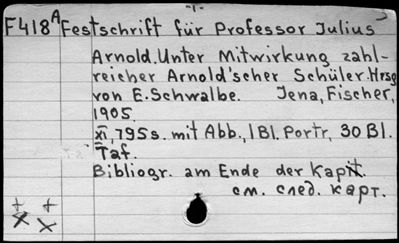 -1-
F418A Festschrift für Professor Julius
Arnold. Unter Mitwirkung zahl-
reicher Arnold'scher Schüler. Hrsg
von E. Schwalbe. Jena, Fischer,
1905.
XI, 795s. mit Abb., 1 Bl. Portr, 30 Bl.
Taf.
Bibliogr. am Ende der Kapit.
см. след. карт.